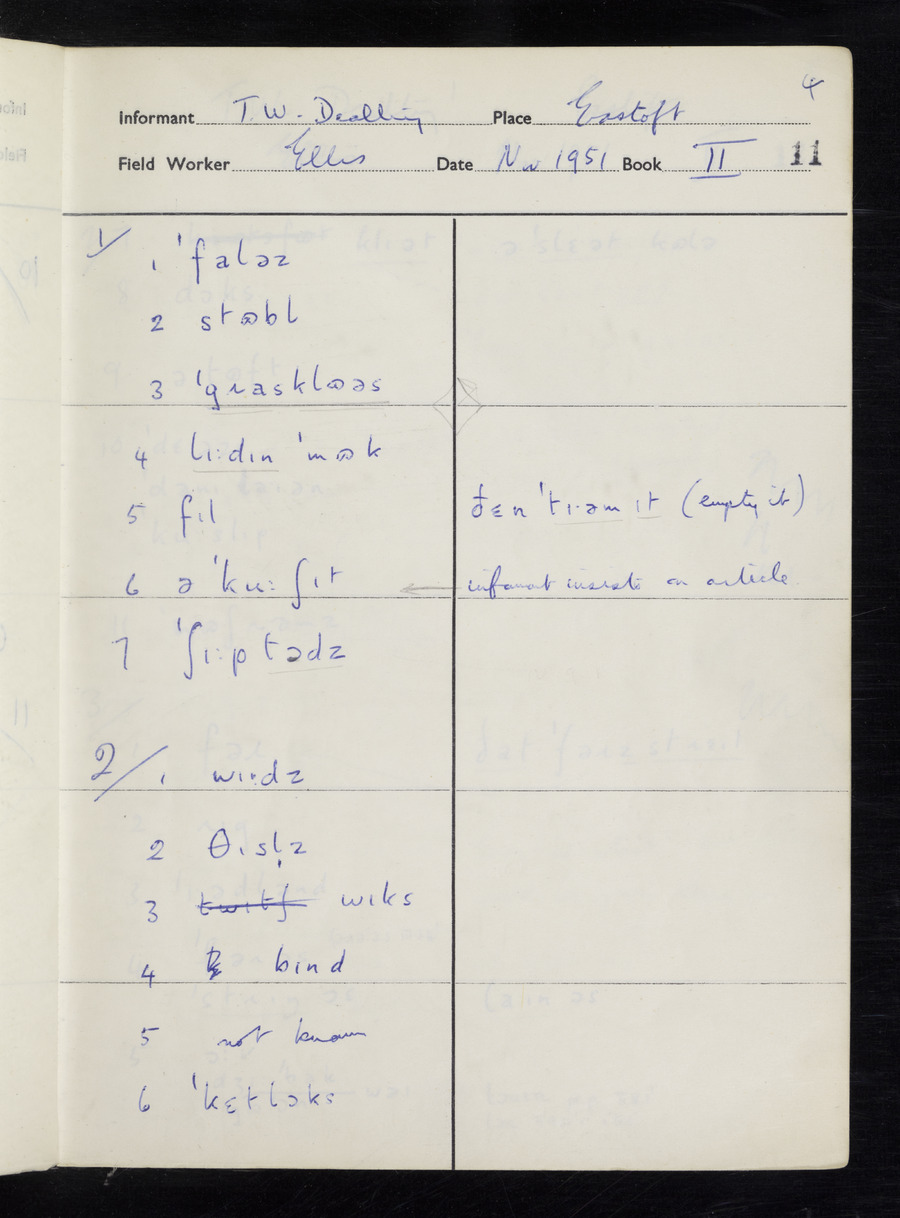 4
Informant T. W. Dealling Place Eastoft
Field Worker Ellis Date Nov 1951 Book II 11
1/ 1 ˈfaləz
2 stɷbl
3 ˈgɹasklɷəs
4 lɪ:dɪn ˈmɷk
5 fɪl ðɛn ˈtɪ·əm ɪt (empty it)
6 ə ˈku: ʃɪt informant insists on article
7 ˈʃɪ:ptədz
2/ 1 wɪ·dz
2 θɪsl̩z
3 twɪtʃ wɪks
4 bɪnd
5 not known
6 ˈkɛtləks